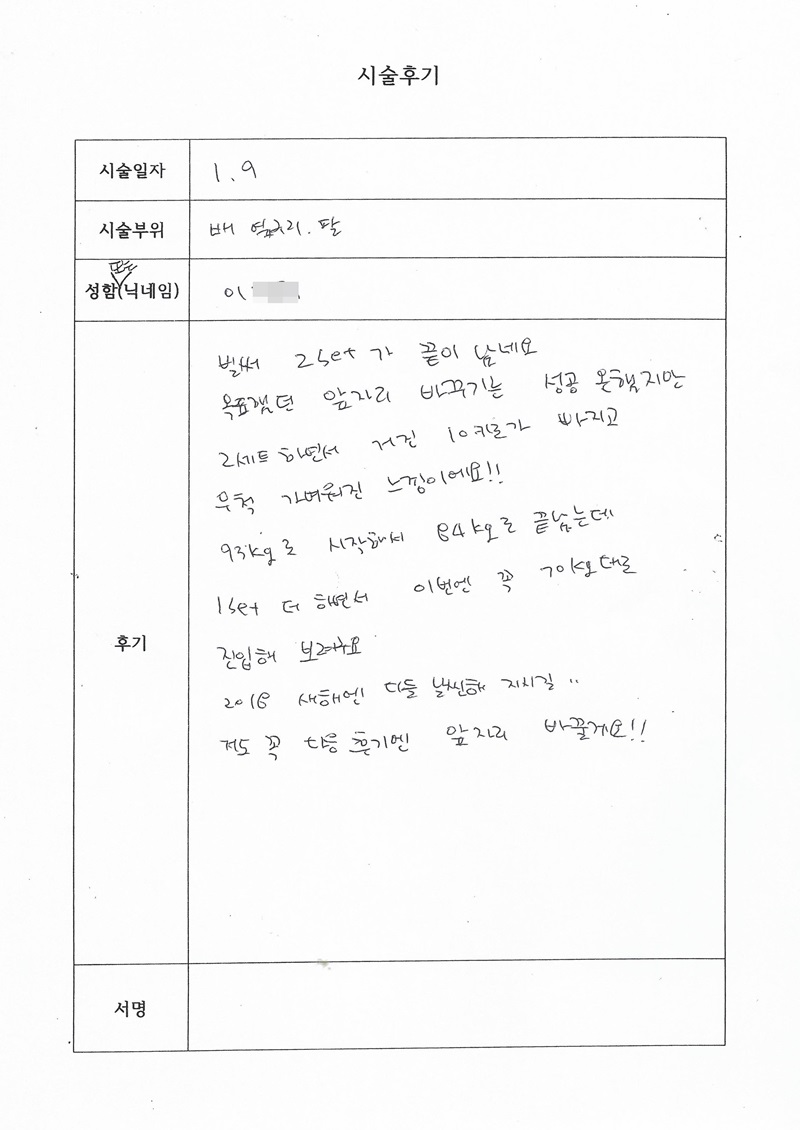 시술후기
시술일자 1.9
시술부위 배 옆구리. 팔
또는
성함(닉네임) 이
후기
벌써 2set가 끝이 났네요
목표했던 앞자리 바꾸기는 성공 못했지만
2세트 하면서 거진 10키로가 빠지고
무척 가벼워진 느낌이에요!!
93kg로 시작해서 84kg로 끝났는데
1set 더 하면서 이번엔 꼭 70kg대로
진입해 보려구요
2018 새해엔 다들 날씬해 지시길 ..
저도 꼭 다음 후기엔 앞자리 바꿀게요!!
서명